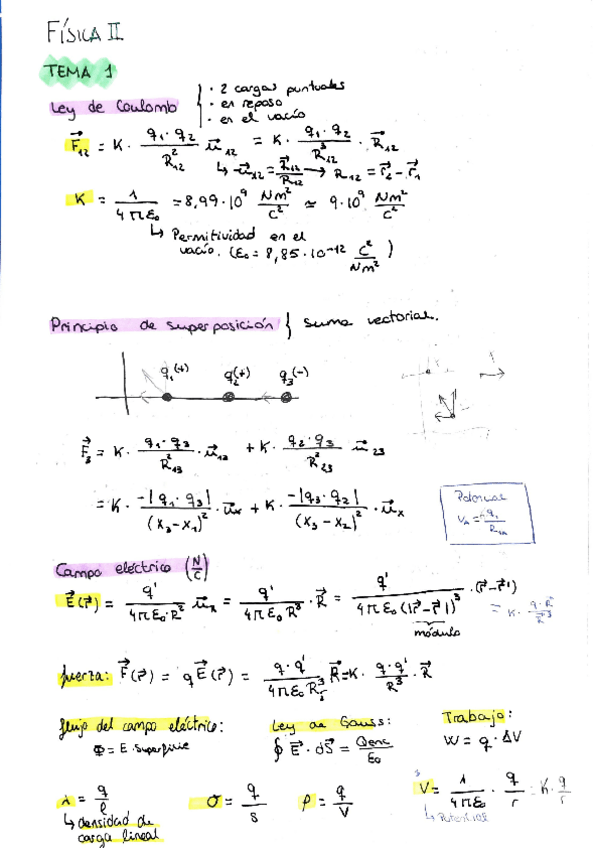 FÍSICA II
TEMA 1
Ley de Coulomb { · 2 cargas puntuales
· en reposo
· en el vacío
F⃗₁₂ = K · q₁·q₂/R²₁₂ · u⃗₁₂ = K · q₁·q₂/R³₁₂ · R⃗₁₂
↳ u⃗₁₂ = R⃗₁₂/R₁₂ → R₁₂ = r⃗₂ - r⃗₁
K = 1/4πε₀ = 8,99·10⁹ Nm²/C² ≃ 9·10⁹ Nm²/C²
↳ Permitividad en el
vacío. (ε₀ = 8,85·10⁻¹² C²/Nm²)
Principio de superposición } suma vectorial.
q₁(+) q₂(+) q₃(-)
F⃗₃ = K · q₁·q₃/R²₁₃ · u⃗₁₃ + K · q₂·q₃/R²₂₃ · u⃗₂₃
= K · -|q₁·q₃|/(x₃-x₁)² · u⃗ₓ + K · -|q₃·q₂|/(x₃-x₂)² · u⃗ₓ
Potencial
Campo eléctrico (N/C)
E⃗(r⃗) = q'/4πε₀·R² u⃗ᵣ = q'/4πε₀R³ · R⃗ = q'/4πε₀(|r⃗-r⃗'|)³ · (r⃗-r⃗') = K · q·R⃗/R³
módulo
fuerza: F⃗(r⃗) = qE⃗(r⃗) = q·q'/4πε₀R³ R⃗ = K · q·q'/R³ · R⃗
flujo del campo eléctrico: Ley de Gauss: Trabajo:
Φ = E · superficie ∮ E⃗ · dS⃗ = Qenc/ε₀ W = q · ΔV
λ = q/l σ = q/s ρ = q/V V = 1/4πε₀ · q/r = K · q/r
↳ densidad de ↳ Potencial
carga lineal